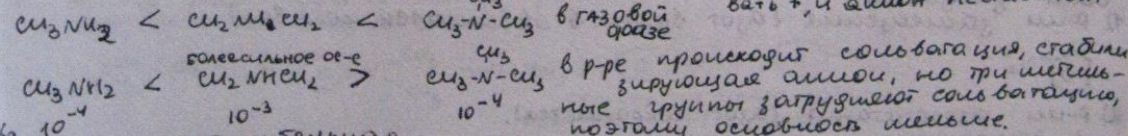 CH3
CH3NH2 < CH2NHCH2 < CH3-N-CH3 в газовой фазе
более сильное ос-е
CH3
CH3NH2 < CH2NHCH2 > CH3-N-CH3 в р-ре происходит сольватация, стабили
зирующая аммон, но три метиль-
10-4 10-3 10-4 ные группы затрудняют сольватацию,
поэтому основность меньше.